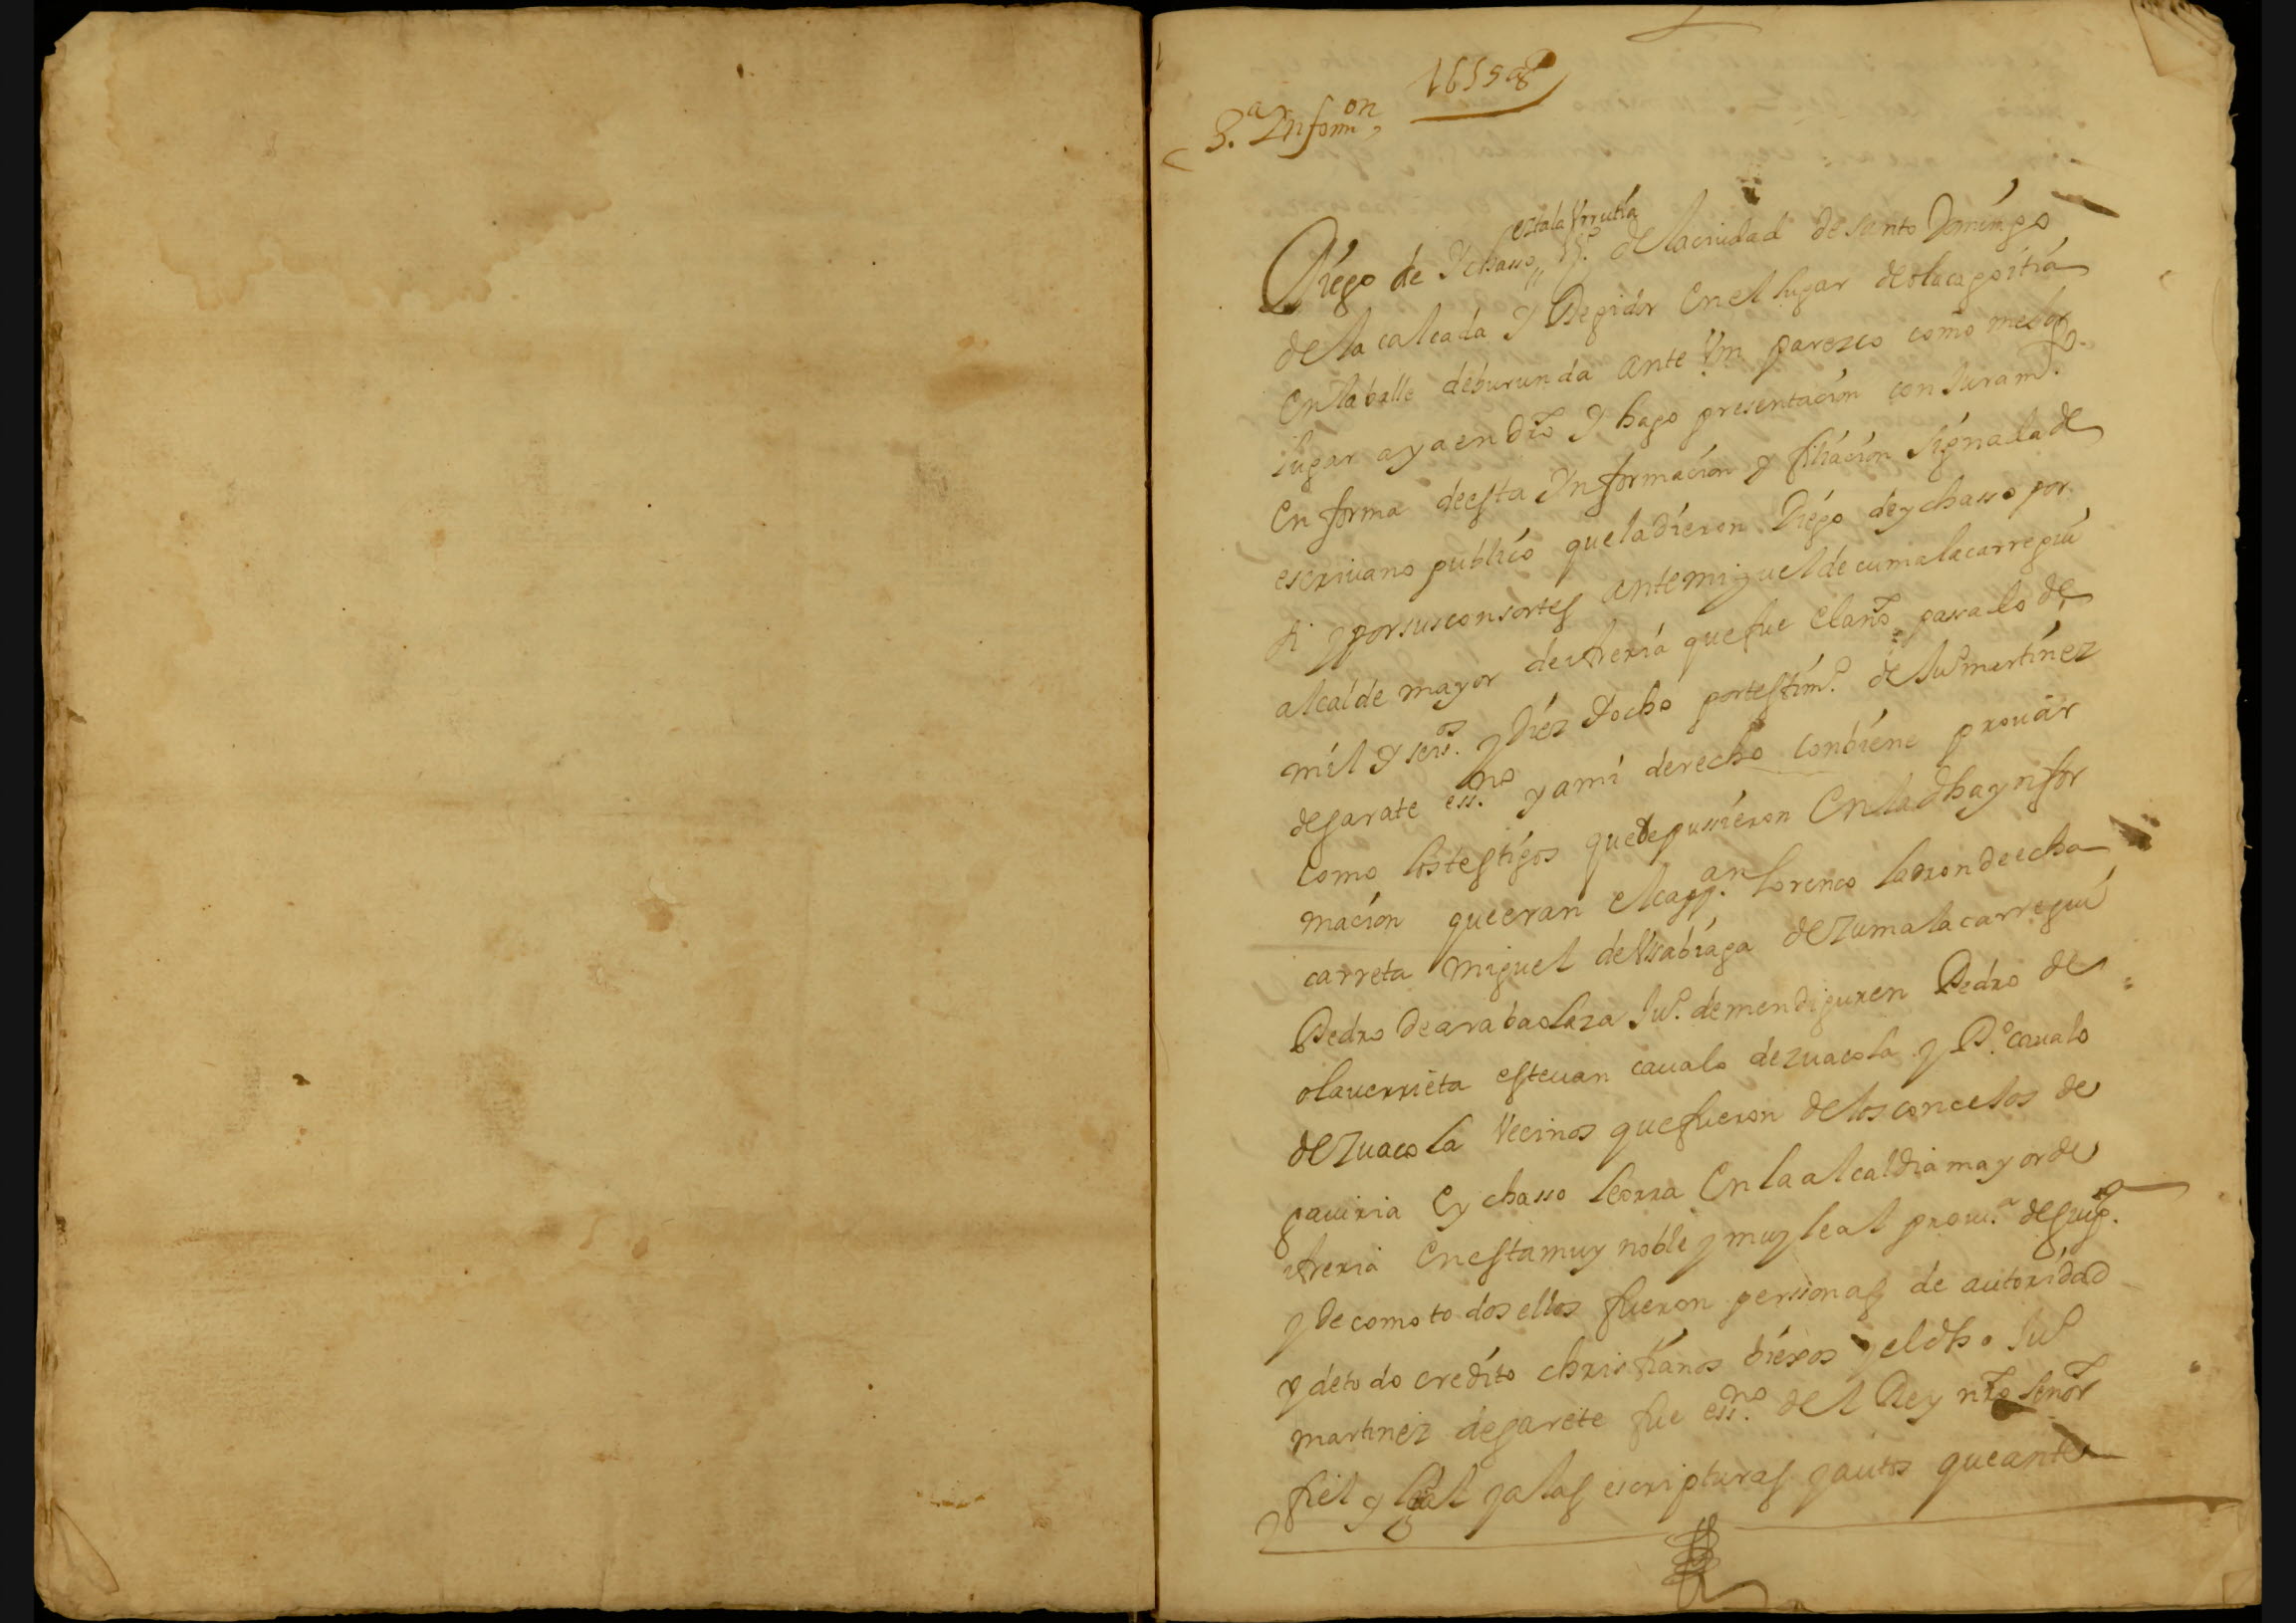 3.ª Informon
1655 as
oztala Vrrutia
Diego de Ychasso vº. de la ciudad de santo Domingo
de la calcada y Regidor en el lugar de olacagoitia
en la balle deburunda ante Vm parezco como mejor
lugar aya en dro y hago presentacion con juramto.
en forma de esta Ynformacion y filiacion signada de
escriuano publico que la dieron Diego de ychasso por
si y por sus consortes ante miguel de cumalacarregui
alcalde mayor de areria que fue el año passado de
mil y seisos. y diez y ocho por testimº. de Juº martinez
de sarate essno. y a mi derecho conbiene prouar
como los testigos que depussieron en la dha ynfor
macion que eran el cappan. lorenco ladron de echa
carreta miguel de Vsabiaga de zumalacarregui
Pedro de arabaolaza Juº. de mendiguren Pedro de
olauerrieta esteuan caualo de zuacola y Pº. caualo
de zuacola Vecinos que fueron de los concejos de
gauiria e ychasso lecorra en la alcaldia mayor de
Areria en esta muy noble y muy leal prouª. de guipª.
y de como todos ellos fueron perssonas de autoridad
y de todo credito christianos biexos y el dho Juº
martinez de sarete fue essno. del Rey nro señor
fiel y leal y a las escripturas y autos que ante